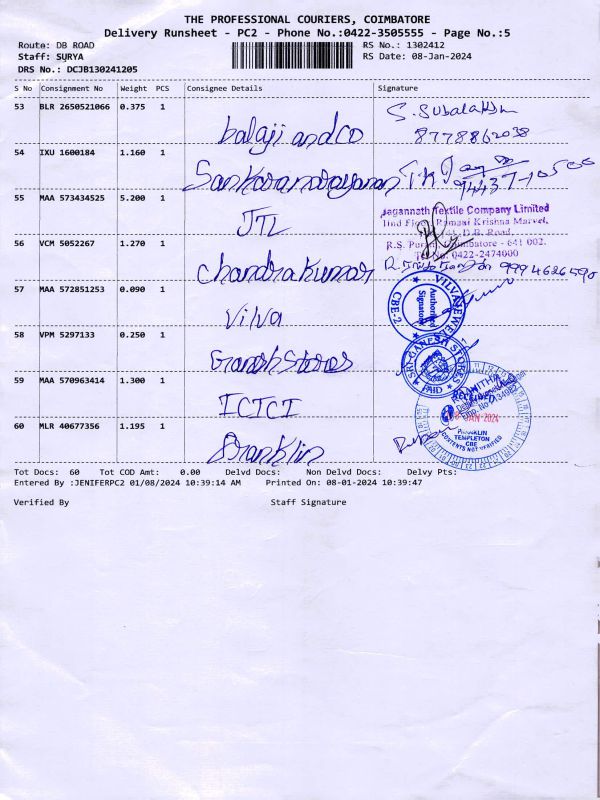 THE PROFESSIONAL COURIERS, COIMBATORE
Delivery Runsheet - PC2 - Phone No.:0422-3505555 - Page No.:5
Route: DB ROAD
RS No.: 1302412
Staff: SURYA
RS Date: 08-Jan-2024
DRS No.: DCJB130241205
S No Consignment No Weight PCS Consignee Details Signature
53 BLR 2650521066 0.375 1
balaji and co
8778862038
54 IXU 1600184 1.160 1
Sankaranarayanan
55 MAA 573434525 5.200 1
JTL
Jagannath Textile Company Limited
Ramani Krishna Marvel,
D.B. Road,
Coimbatore - 641 002.
0422-2474000
56 VCM 5052267 1.270 1
chandrakumar
9994626590
57 MAA 572851253 0.090 1
Vilva
Authorised
Signatory
CBE-2
58 VPM 5297133 0.250 1
Ganesh Stores
SRI GANESH STORES
PAID
59 MAA 570963414 1.300 1
ICICI
60 MLR 40677356 1.195 1
Franklin
JAN 2024
FRANKLIN
TEMPLETON
CBE
CONTENTS NOT VERIFIED
Tot Docs: 60 Tot COD Amt: 0.00 Delvd Docs: Non Delvd Docs: Delvy Pts:
Entered By :JENIFERPC2 01/08/2024 10:39:14 AM Printed On: 08-01-2024 10:39:47
Verified By Staff Signature